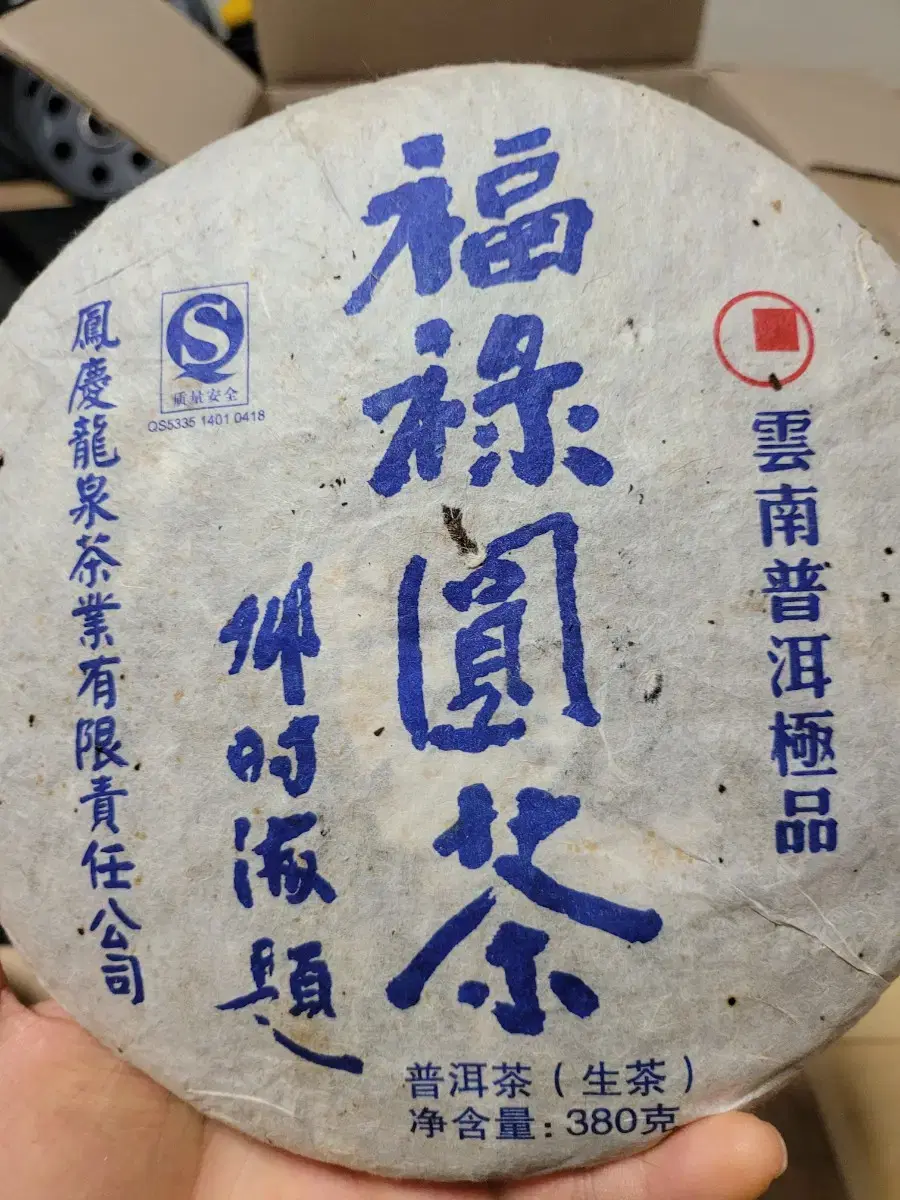 雲南普洱極品
福祿圓茶
鄧时海題
质量安全
QS5335 1401 0418
鳳慶龍泉茶業有限責任公司
普洱茶（生茶）
净含量：380克